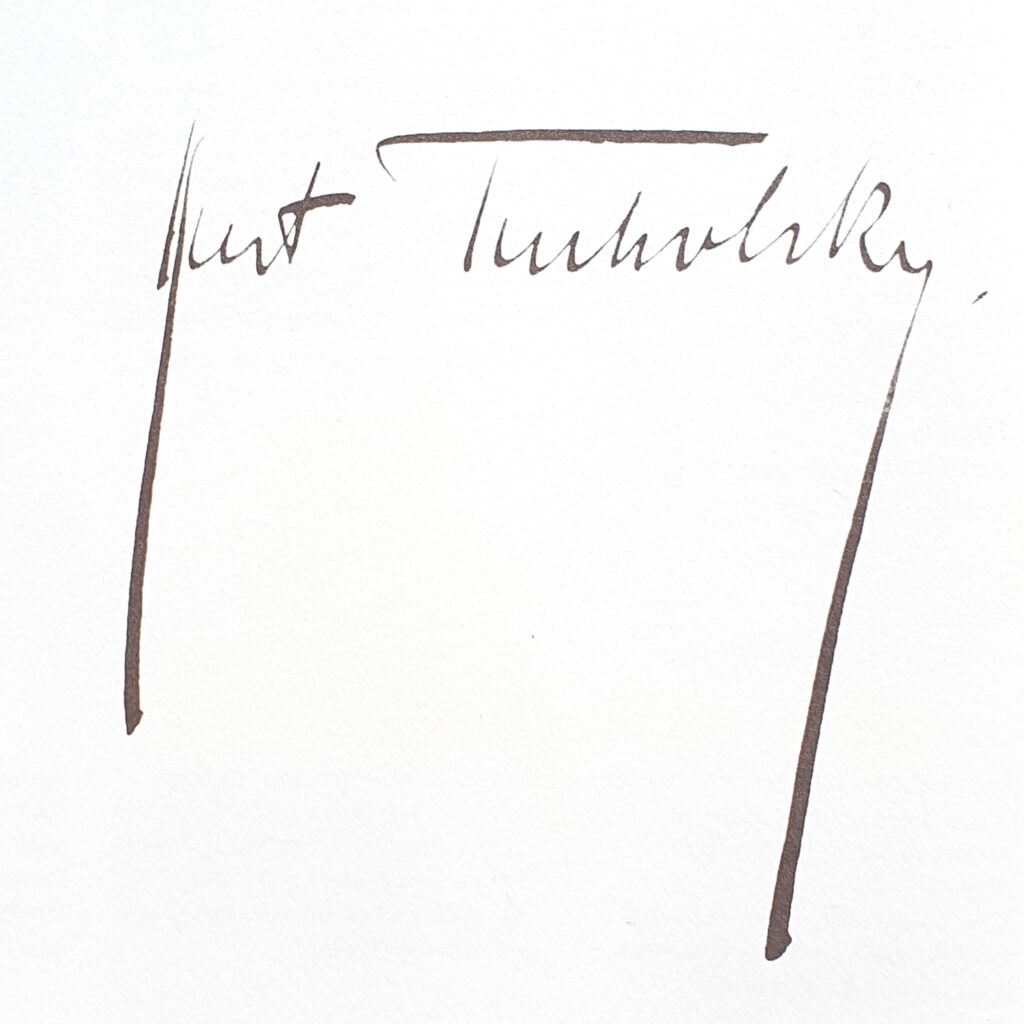 Kurt Tucholsky.